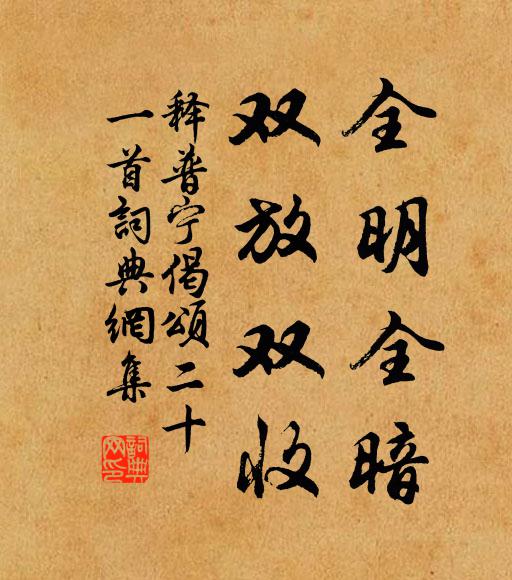 全明全暗
双放双收
释普宁偈颂二十
一首詞典網集
詞典
网印